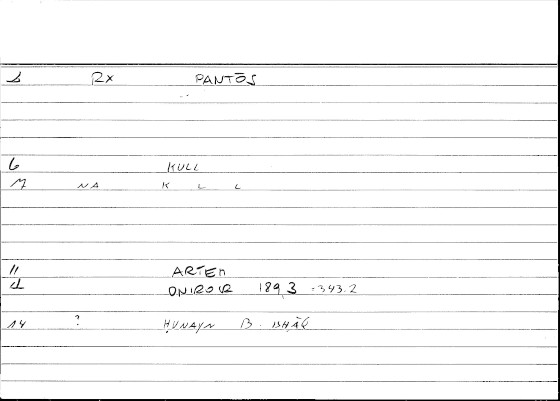 RX PANTŌS
6 KULL
M NA K L L
11 ARTEM
d ONIROCR 189,3 =343.2
14 ? ḤUNAYN B. ISḤĀQ